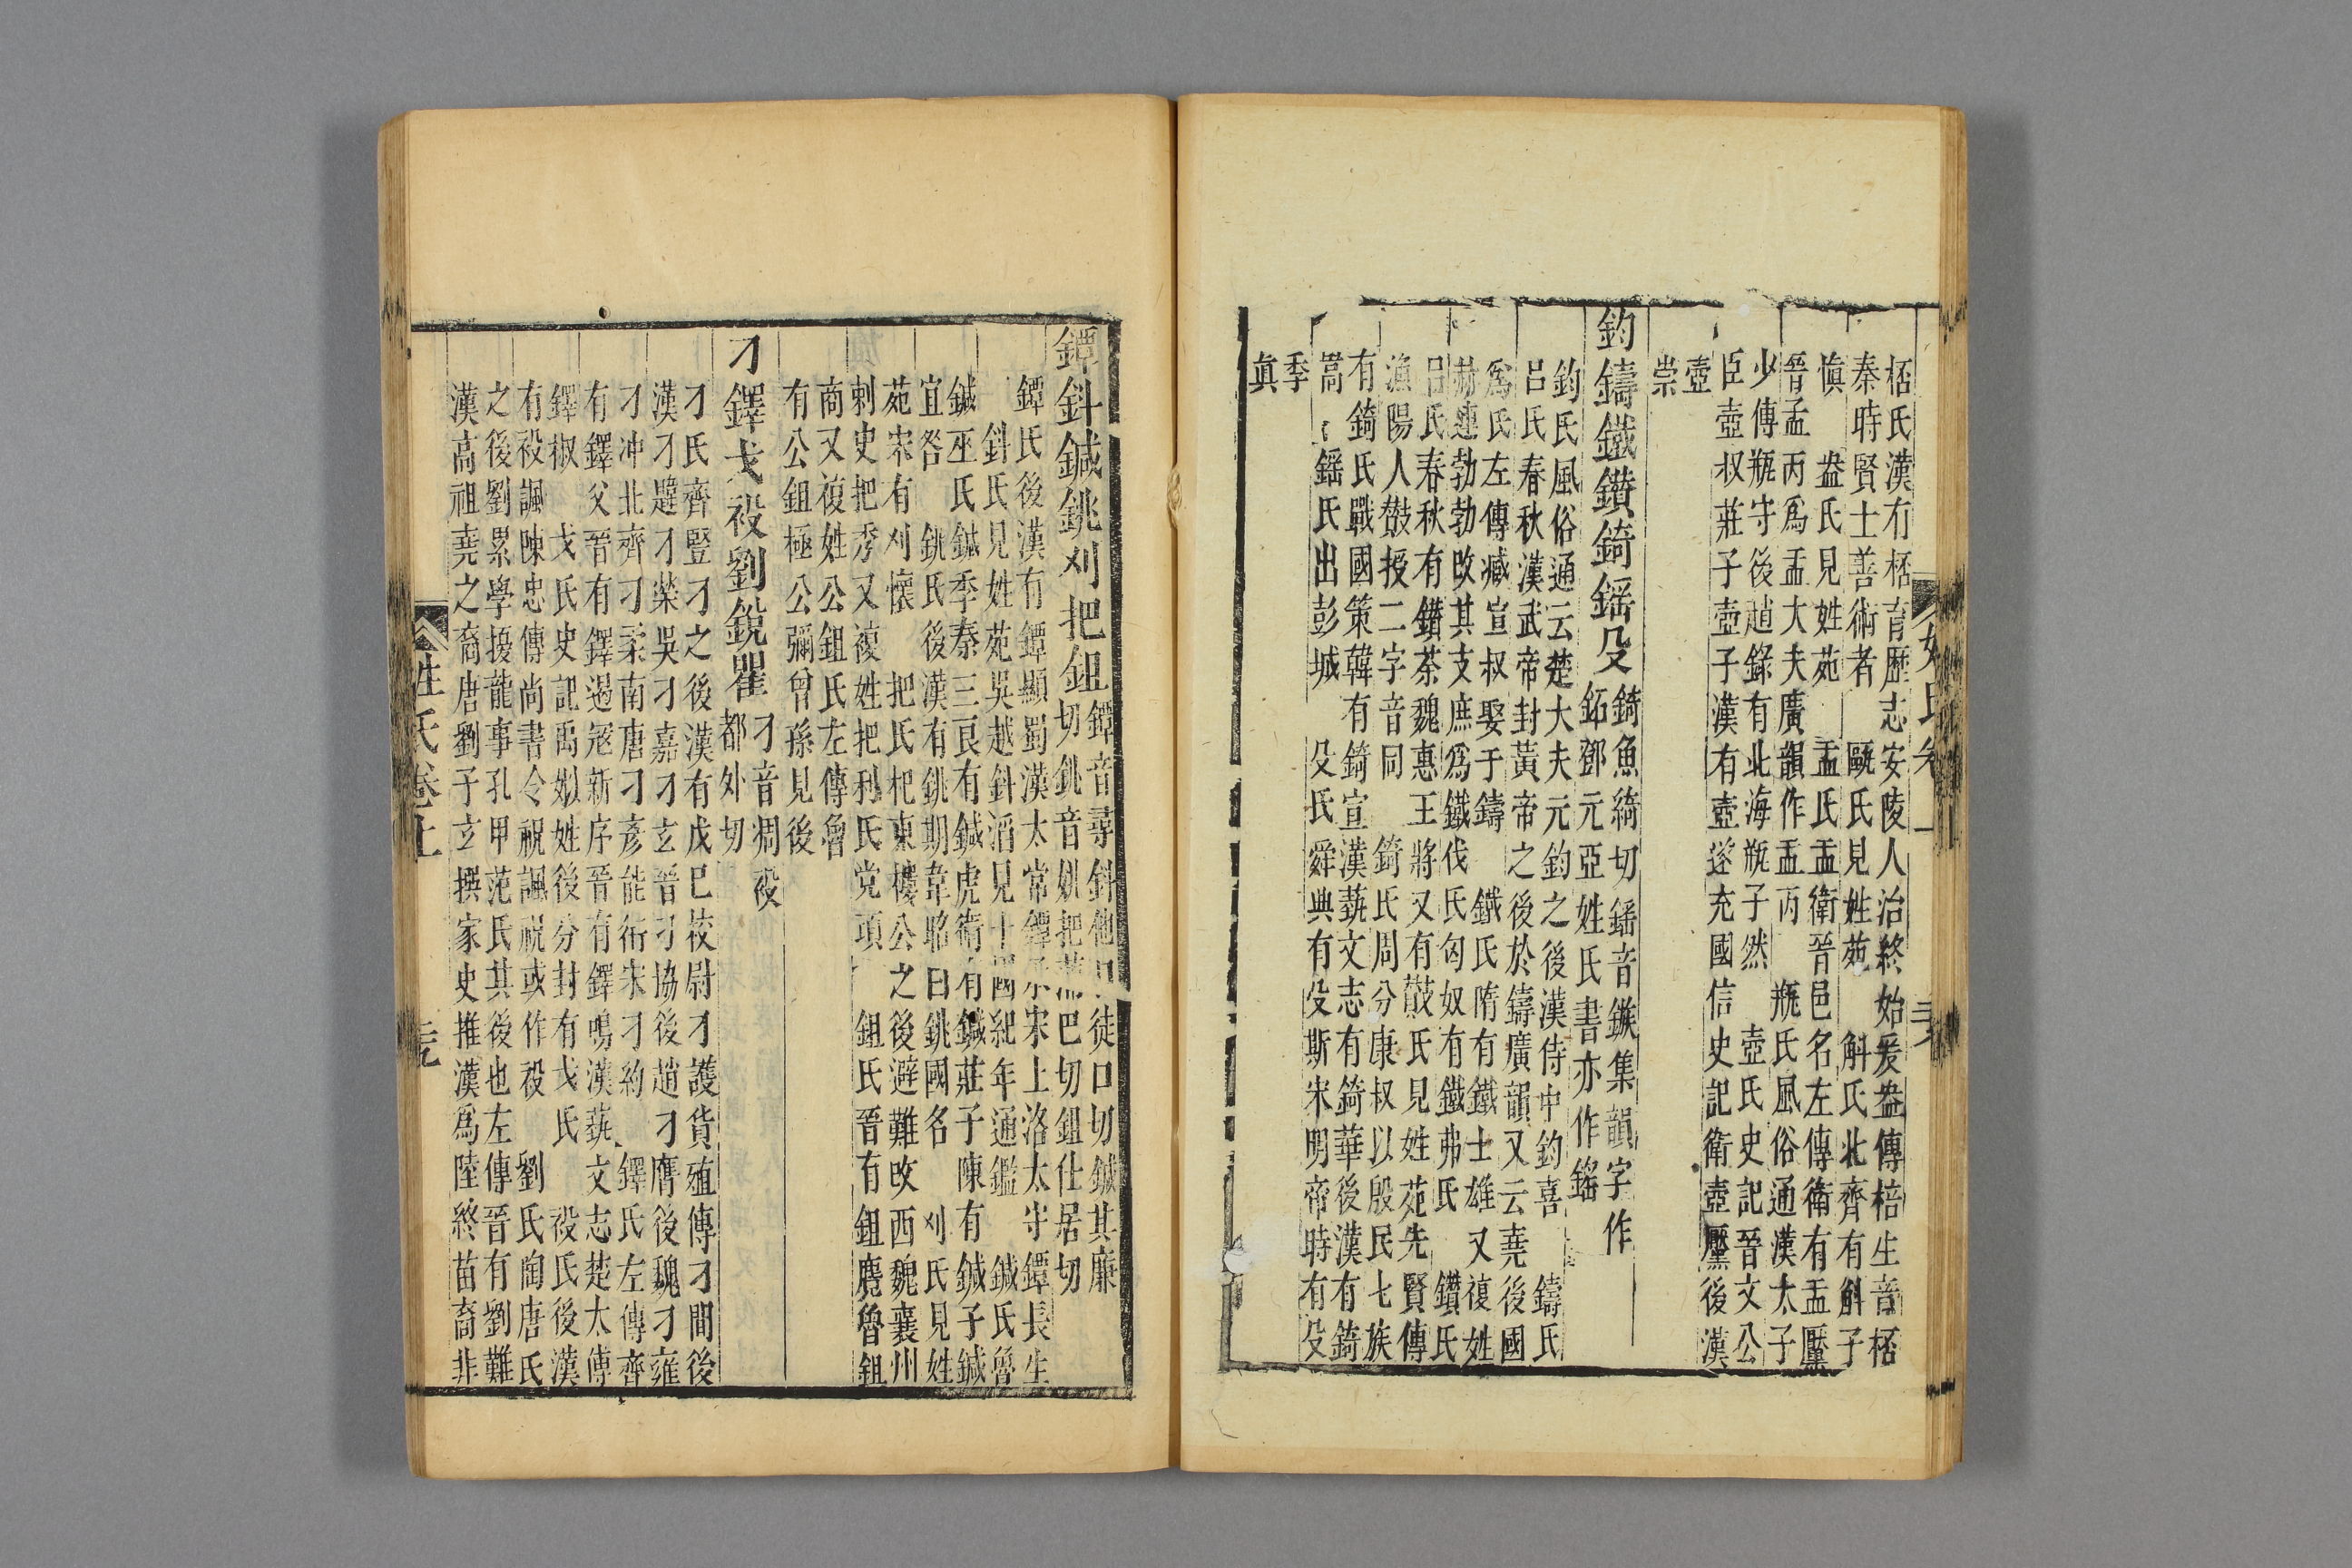 桰氏漢有桰育歷志安陵人治終始爰盎傳棓生音桰
秦時賢士善術者 甌氏見姓苑 斛氏北齊有斛子
愼 盎氏見姓苑 盂氏盂衛晉邑名左傳衛有盂黶
晉孟丙爲盂大夫廣韻作盂丙 瓶氏風俗通漢太子
少傳瓶守後趙錄有北海瓶子然 壺氏史記晉文公
臣壺叔莊子壺子漢有壺遂充國信史記衛壺黶後漢
壺
崇
釣鑄鐵鑽錡鎐殳
錡魚綺切鎐音鏃集韻字作
鉐鄧元亞姓氏書亦作鎐
釣氏風俗通云楚大夫元釣之後漢侍中釣喜 鑄氏
呂氏春秋漢武帝封黃帝之後於鑄廣韻又云堯後國
爲氏左傳臧宣叔娶于鑄 鐵氏隋有鐵士雄又複姓
赫連勃勃改其支庶爲鐵伐氏匈奴有鐵弗氏 鑽氏
呂氏春秋有鑽荼魏惠王將又有鼓氏見姓苑先賢傳
漁陽人鼓授二字音同 錡氏周分康叔以殷民七族
有錡氏戰國策韓有錡宣漢蓺文志有錡華後漢有錡
嵩 鎐氏出彭城 殳氏舜典有殳斯宋明帝時有殳
季
眞
鐔鈄鍼銚刈把鉏
鐔音尋鈄他口徒口切鍼其廉
切銚音姚把蒲巴切鉏仕居切
鐔氏後漢有鐔顯蜀漢太常鐔承宋上洛太守鐔長生
鈄氏見姓苑吳越鈄滔見十國紀年通鑑 鍼氏魯
鍼巫氏鍼季秦三良有鍼虎衛有鍼莊子陳有鍼子鍼
宜咎 銚氏後漢有銚期韋昭曰銚國名 刈氏見姓
苑宋有刈懷 把氏杞東樓公之後避難改西魏襄州
剌史把秀又複姓把利氏党項 鉏氏晉有鉏麑魯鉏
商又複姓公鉏氏左傳魯
有公鉏極公彌曾孫見後
刁鐸戈祋劉銳瞿
刁音凋祋
都外切
刁氏齊豎刁之後漢有戊巳校尉刁護貨殖傳刁間後
漢刁韙刁榮吳刁嘉刁玄晉刁協後趙刁膺後魏刁雍
刁冲北齊刁柔南唐刁彥能衎宋刁約 鐸氏左傳齊
有鐸父晉有鐸遏寇新序晉有鐸鳴漢蓺文志楚太傅
鐸椒 戈氏史記禹姒姓後分封有戈氏 祋氏後漢
有祋諷陳忠傳尚書令祝諷祝或作祋 劉氏陶唐氏
之後劉累學擾龍事孔甲范氏其後也左傳晉有劉難
漢高祖堯之裔唐劉子玄撰家史推漢爲陸終苗裔非
姓氏卷上